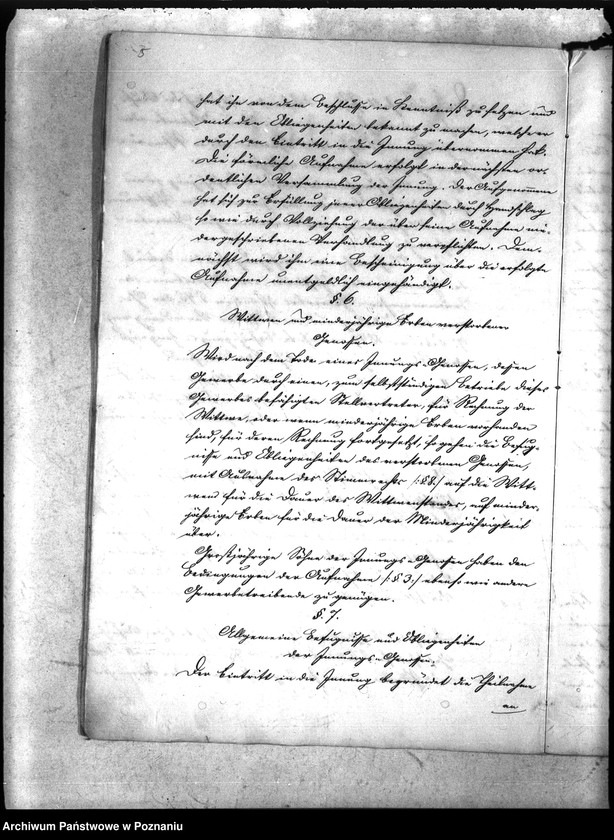 5
hat ihn von dem Beschlusse in Kenntniß zu setzen und
mit den Obliegenheiten bekannt zu machen, welche er
durch den Eintritt in die Innung übernommen hat.
Die förmliche Aufnahme erfolgt in der nächsten or-
dentlichen Versammlung der Innung. Der Aufgenommene
hat sich zur Erfüllung jener Obliegenheiten durch Handschlag
so wie durch Vollziehung der über seine Aufnahme nie-
dergeschriebenen Verhandlung zu verpflichten. Dem-
nächst wird ihm eine Bescheinigung über die erfolgte
Aufnahme unentgeldlich eingehändigt.
§. 6.
Wittwen und minderjährige Erben verstorbener
Genossen.
Wird nach dem Tode eines Innungs-Genossen, dessen
Gewerbe durch einen, zum selbstständigen Betriebe dieses
Gewerbes befähigten Stellvertreter, für Rechnung der
Wittwe, oder wenn minderjährige Erben vorhanden
sind, für deren Rechnung fortgesetzt, so gehen die Befug-
nisse und Obliegenheiten des verstorbenen Genossen,
mit Ausnahme des Stimmrechts /:§ 8:/ auf die Witt-
wen für die Dauer des Wittwenstandes, auf minder-
jährige Erben für die Dauer der Minderjährigkeit
über.
Großjährige Söhne der Innungs-Genossen haben den
Bedingungen der Aufnahme /:§ 3:/ ebenso wie andere
Gewerbetreibende zu genügen.
§. 7.
Allgemeine Befugnisse und Obliegenheiten
der Innungs-Genossen.
Der Eintritt in die Innung begründet die Theilnahme
an
Archiwum Państwowe w Poznaniu